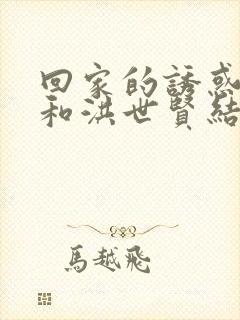 回家的誘惑
和洪世賢結
馬越飛